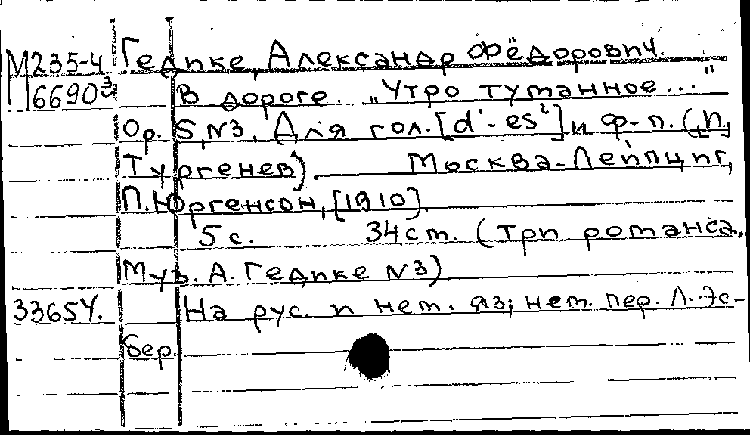 М235-4 Гедике, Александр Фёдорович.
6690³ В дороге. „Утро туманное..."
Ор. 5, №3. Для гол. [d¹-es²] и ф-п. (И.
Тургенев). Москва-Лейпциг,
П. Юргенсон, [1910].
5 с. 34 см. (Три романса.
Муз. А. Гедике №3)
33654. На рус. и нем. яз; нем. пер. Л. Эс-
бер.